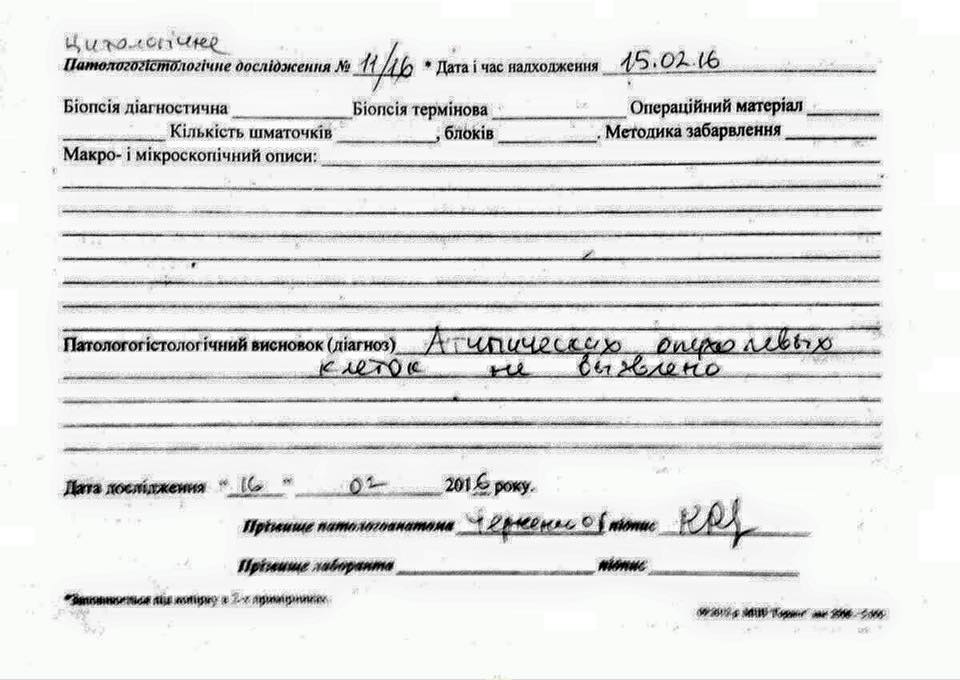 Цитологічне
Патологогістологічне дослідження № 11/16 * Дата і час надходження 15.02.16
Біопсія діагностична ________ Біопсія термінова ________ Операційний матеріал ________
________ Кількість шматочків ________, блоків ________. Методика забарвлення ________
Макро- і мікроскопічний описи:
Патологогістологічний висновок (діагноз) Атипических опухолевых
клеток не выявлено
Дата дослідження "16" 02 2016 року.
Прізвище патологоанатома підпис
Прізвище лаборанта ________ підпис ________
*Заповнюється під копірку в 2-х примірниках.